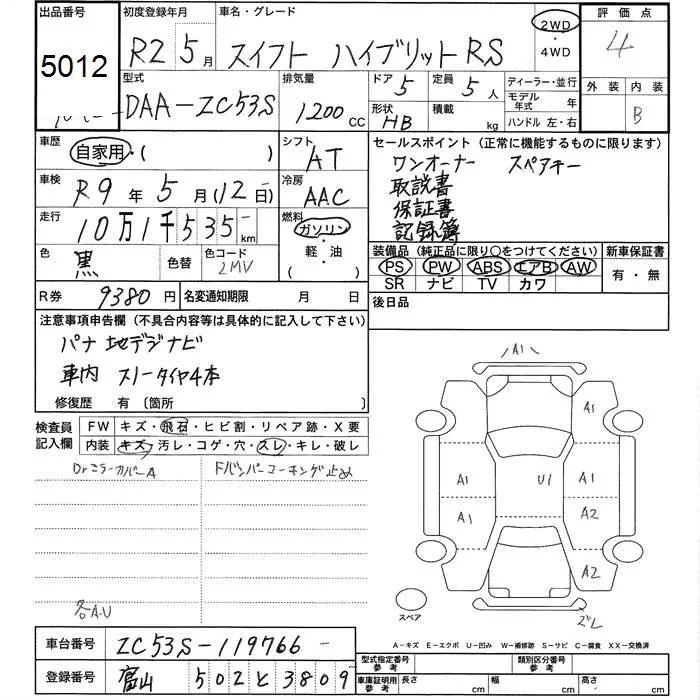 出品番号 初度登録年月 車名・グレード 評価点
5012 R2 5月 スイフト ハイブリット RS 2WD ・ 4WD 4
型式 排気量 ドア 定員 ディーラー・並行 外装 内装
DAA-ZC53S 1200 CC 5 5人 モデル年式 年 B
形状 HB 積載 kg ハンドル 左・右
車歴 自家用・( ) シフト AT
セールスポイント (正常に機能するものに限ります)
ワンオーナー スペアキー
取説書
保証書
記録簿
車検 R9年 5月(12日) 冷房 AAC
走行 10万1千535 km 燃料 ガソリン・軽・油 ( )
色 黒 色替 色コード 2MV
装備品 (純正品に限り○をつけてください) 新車保証書
PS PW ABS エアB AW 有・無
SR ナビ TV カワ
R券 9380円 名変通知期限 月 日 後日品
注意事項申告欄 (不具合内容等は具体的に記入して下さい)
パナ 地デジナビ
車内 スノータイヤ4本
修復歴 有 〔箇所 〕
検査員記入欄 FW キズ・飛石・ヒビ割・リペア跡・X要
内装 キズ・汚レ・コゲ・穴・スレ・キレ・破レ
Drミラーカバー A Fバンパーコーキング止め
各A.U
A1
A1
A1 U1 A1
A1 A2
A2
スペア
A-キズ E-エクボ U-凹み W-補修跡 S-サビ C-腐食 XX-交換済
車台番号 ZC53S-119766-
登録番号 富山 502 と 3809
型式指定番号 参考 類別区分番号 参考
車庫証明用 参考 長さ cm 幅 cm 高さ cm